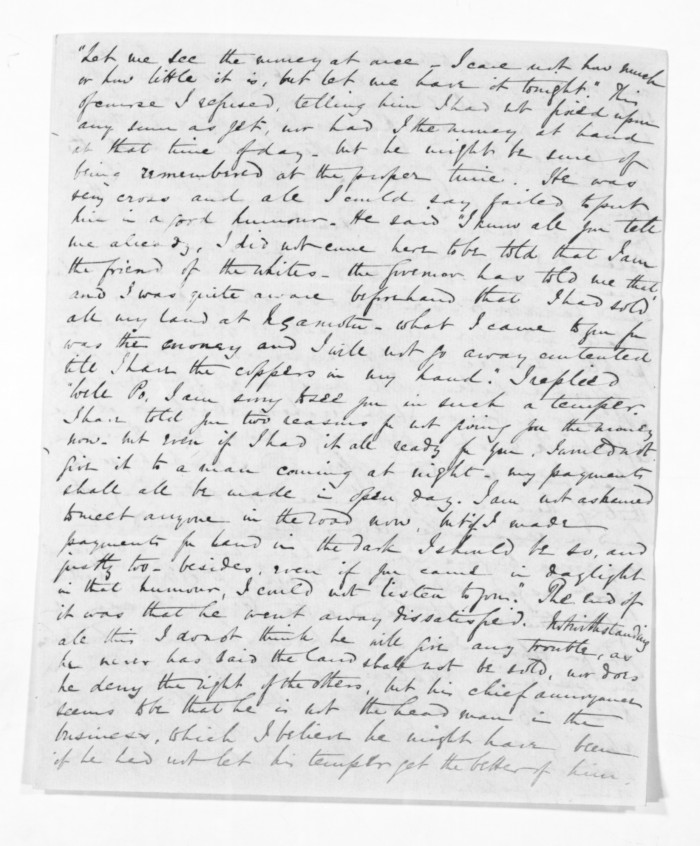 "Let me see the money at once - I care not how much
or how little it is, but let me have it tonight." This
of course I refused, telling him I had not fixed upon
any sum as yet, nor had I the money at hand
at that time of day - but he might be sure of
being remembered at the proper time. He was
very cross and all I could say failed to put
him in a good humour. He said "I know all you tell
me already, I did not come here to be told that I am
the friend of the whites - the Governor has told me that,
and I was quite aware beforehand that I had sold
all my land at Ngamotu - what I came to you for
was the money and I will not go away contented
till I have the coppers in my hand." I replied
"Well Po, I am sorry to see you in such a temper.
I have told you two reasons for not giving you the money
now - but even if I had it all ready for you, I would not
give it to a man coming at night - my payments
shall all be made in open day. I am not ashamed
to meet anyone in the road now, but if I made
payments for land in the dark I should be so, and
justly too - besides, even if you came in daylight
in that humour, I could not listen to you." The end of
it was that he went away dissatisfied. Notwithstanding
all this I do not think he will give any trouble, as
he never has said the land shall not be sold, nor does
he deny the right of the others, but his chief annoyance
seems to be that he is not the head man in the
business, which I believe he might have been
if he had not let his temper get the better of him.